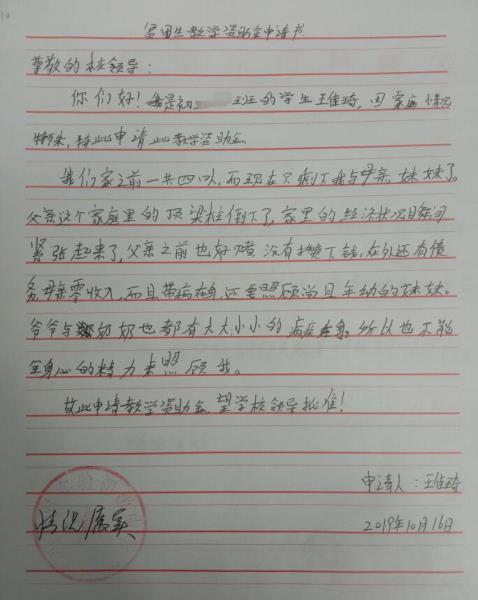 贫困生教学资助金申请书
尊敬的校领导：
你们好！我是初三 班的学生王佳琦，因家庭情况
特殊，特此申请此教学资助金
我们家之前一共四口人，而现在只剩下我与母亲、妹妹了。
父亲这个家庭里的顶梁柱倒下了，家里的经济状况瞬间
紧张起来了，父亲之前也好赌，没有攒下钱，在外还有债
务，母亲零收入，而且带病在身，还要照顾尚且年幼的妹妹。
爷爷与奶奶也都有大大小小的病症在身，所以也不能
全身心的精力来照顾我。
故此申请教学资助金，望学校领导批准！
申请人：王佳琦
情况属实
2019年10月16日